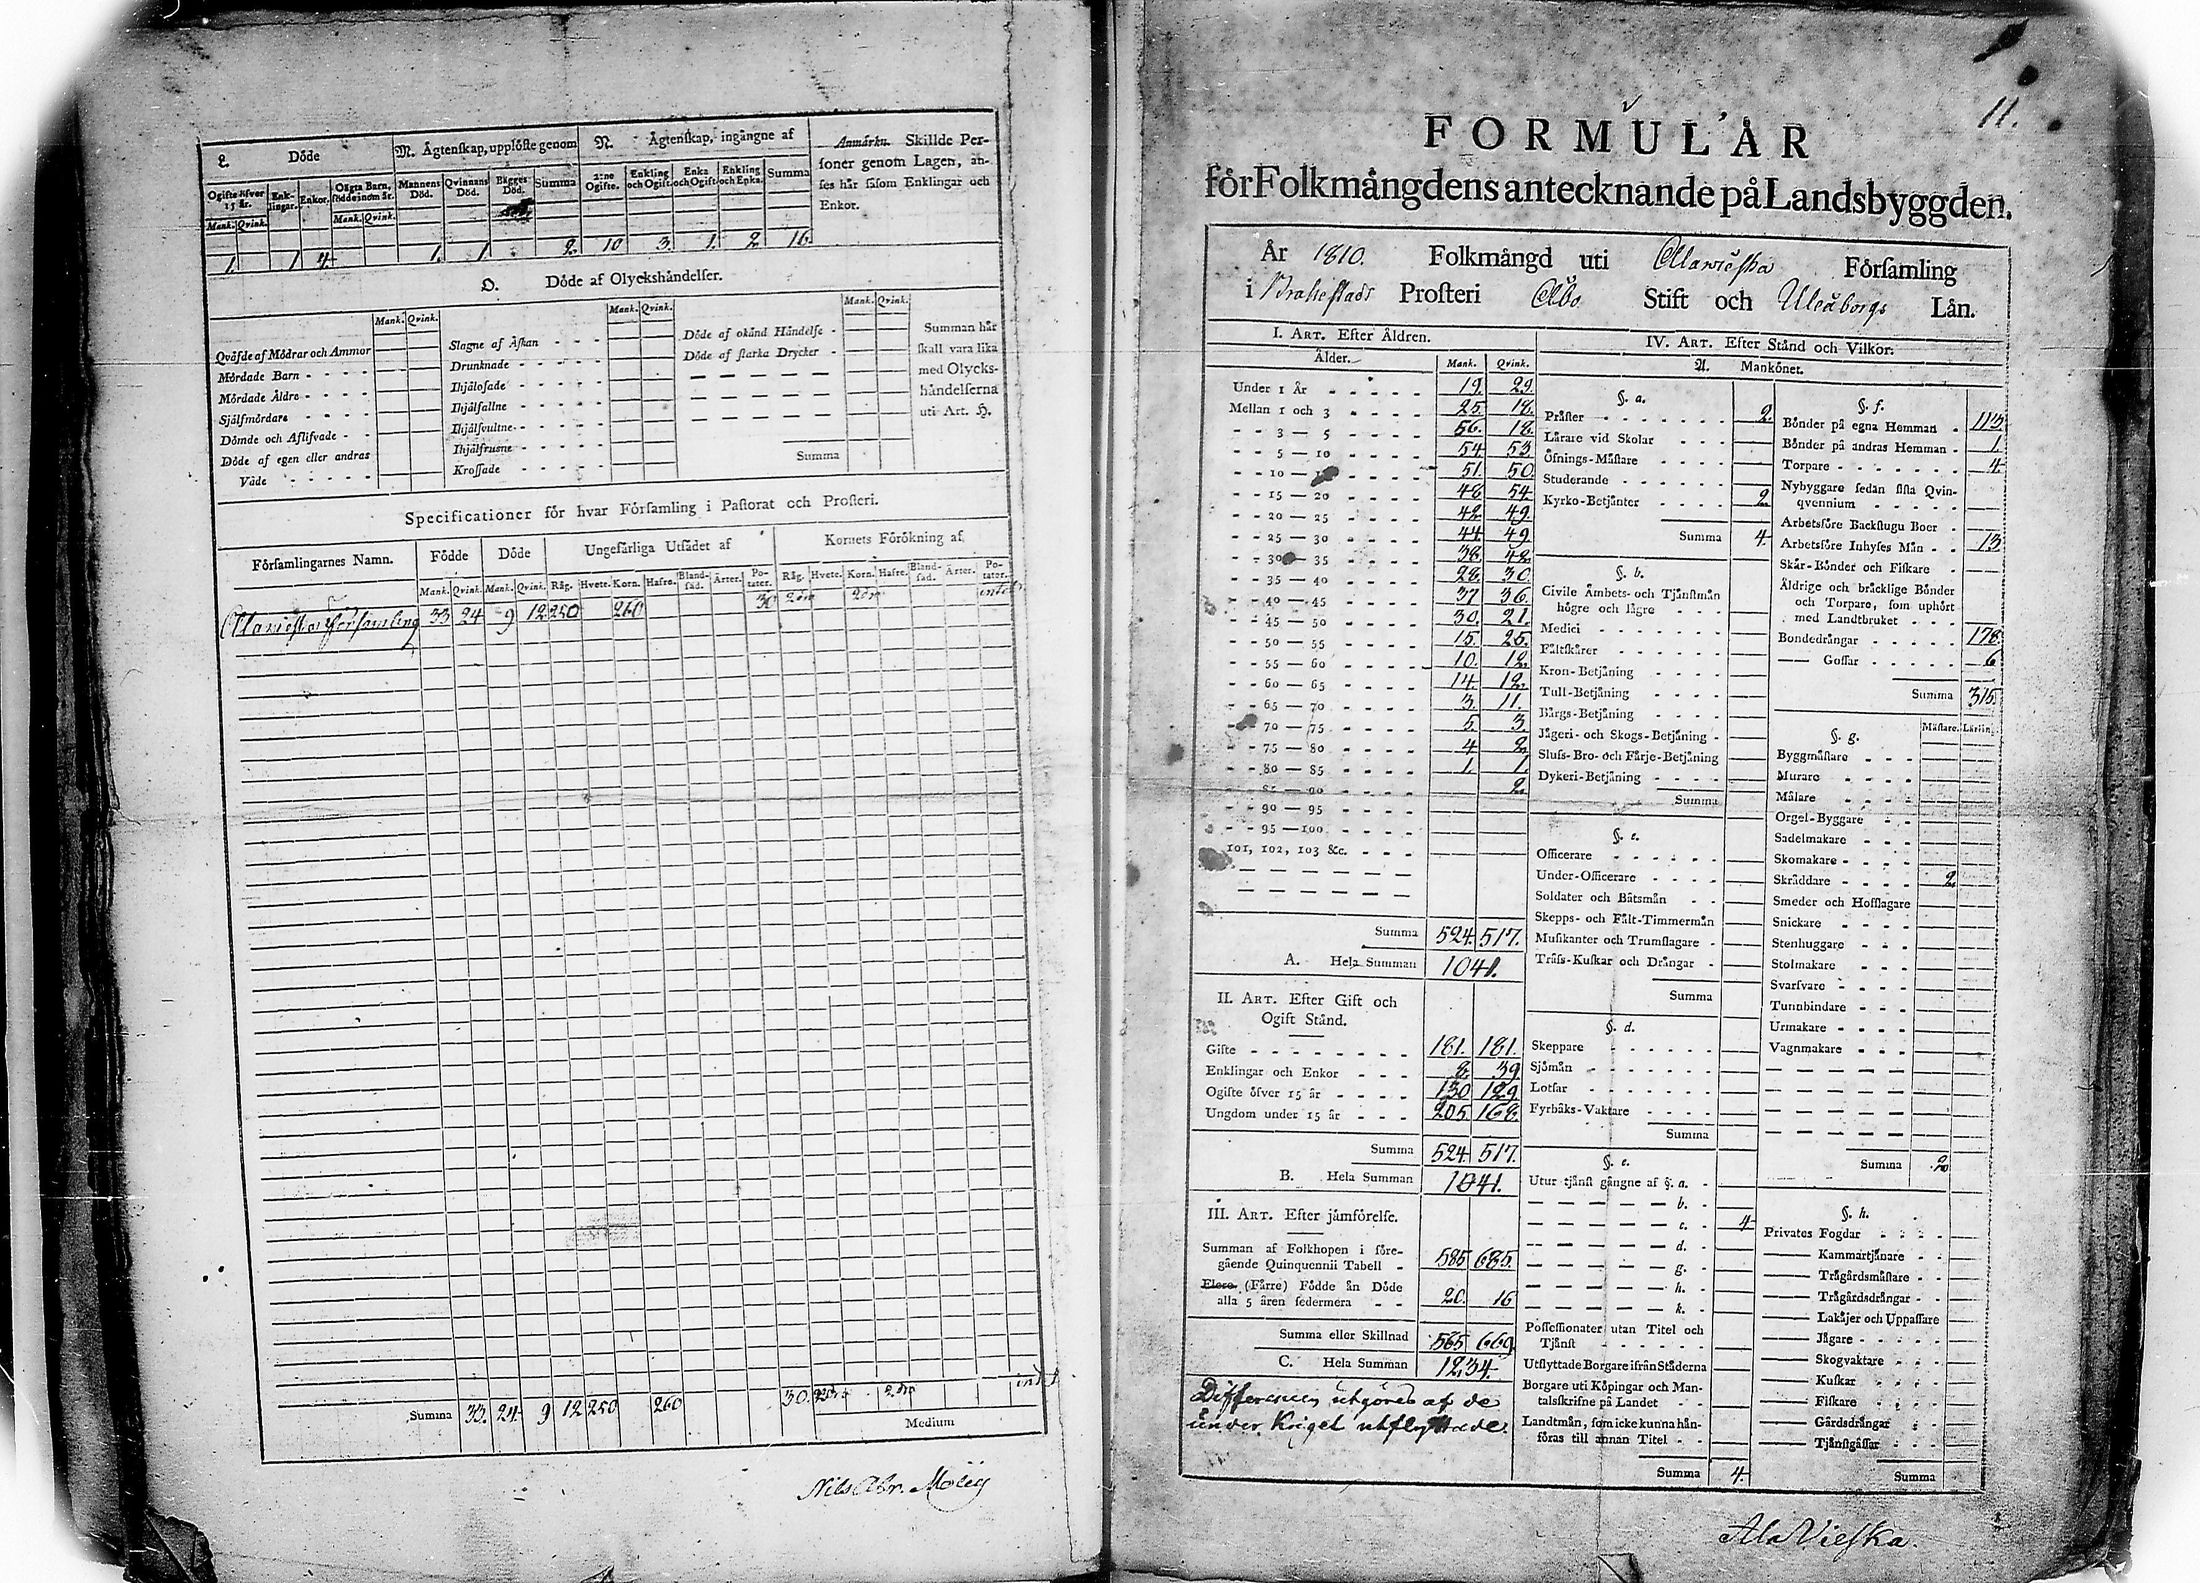 L. Döde
M. Ägtenskap, upplöste genom
N. Ägtenskap, ingångne af
Anmärkn. Skillde Per-
soner genom Lagen, an-
ses här såsom Enklingar och
Enkor.
Ogifte öfver 15 år. Enk-lingar. Enkor. Oägta Barn, födde inom år. Mannens Död. Qvinnans Död. Bägges Död. Summa 2:ne Ogifte. Enkling och Ogift. Enka och Ogift. Enkling och Enka. Summa
Mank. Qvink. Mank. Qvink.
1. 1 4. 1. 1. 2. 10 3. 1. 2 16.
O. Döde af Olyckshändelser.
Mank. Qvink. Mank. Qvink. Mank. Qvink.
Qväfde af Mödrar och Ammor
Mördade Barn
Mördade Äldre
Självmördare
Dömde och Aflifvade
Döde af egen eller andras
Våde
Slagne af Åskan
Drunknade
Ihjälosade
Ihjälfallne
Ihjälsvultne
Ihjälfrusne
Krossade
Döde af okänd Händelse
Döde af starka Drycker
Summa
Summan här
skall vara lika
med Olycks-
händelserna
uti Art. H.
Specificationer för hvar Församling i Pastorat och Prosteri.
Församlingarnes Namn. Födde Döde Ungefärliga Utsädet af Kornets Förökning af
Mank. Qvink. Mank. Qvink. Råg. Hvete. Korn. Hafre. Blandsäd. Ärter. Potater. Råg. Hvete. Korn. Hafre. Blandsäd. Ärter. Potater.
Alawieska Församling 33 24 9 12 250 260 30
Summa 33. 24 9 12 250 260 30.
Medium
Nils Abr.
11.
FORMULÄR
för Folkmängdens antecknande på Landsbyggden.
År 1810. Folkmängd uti Alawieska Församling
i Brahestads Prosteri Åbo Stift och Uleåborgs Län.
I. ART. Efter Åldren.
Ålder. Mank. Qvink.
Under 1 År 19. 29.
Mellan 1 och 3 25. 18.
3 — 5 56. 18.
5 — 10 54 53
10 — 51. 50
15 — 20 48 54
20 — 25 42 49.
25 — 30 44 49
30 — 35 38 42
35 — 40 28. 30.
40 — 45 37 36.
45 — 50 30. 21.
50 — 55 15. 25.
55 — 60 10. 12.
60 — 65 14. 12.
65 — 70 3. 11.
70 — 75 5. 3.
75 — 80 4 2.
80 — 85 1. 1
85 — 90 2
90 — 95
95 — 100
101, 102, 103 &c.
Summa 524. 517.
A. Hela Summan 1041.
II. ART. Efter Gift och
Ogift Stånd.
Gifte 181. 181.
Enklingar och Enkor 8. 39
Ogifte öfver 15 år 130 129
Ungdom under 15 år 205 168.
Summa 524. 517.
B. Hela Summan 1041.
III. ART. Efter jämförelse.
Summan af Folkhopen i före-
gående Quinquennii Tabell 585 685.
Flere (Färre) Födde än Döde
alla 5 åren sedermera 20. 16
Summa eller Skillnad 565 669
C. Hela Summan 1234.
Differencen utgöres af de
under Kriget utflyttade.
IV. ART. Efter Stånd och Vilkor.
A. Mankönet.
§. a.
Präster 2.
Lärare vid Skolar
Öfnings-Mästare
Studerande
Kyrko-Betjänter 2
Summa 4.
§. b.
Civile Ämbets- och Tjänstmän
högre och lägre
Medici
Fältskärer
Kron-Betjäning
Tull-Betjäning
Bärgs-Betjäning
Jägeri- och Skogs-Betjäning
Sluss-Bro- och Färje-Betjäning
Dykeri-Betjäning
Summa
§. c.
Officerare
Under-Officerare
Soldater och Båtsmän
Skepps- och Fält-Timmermän
Musikanter och Trumslagare
Träss-Kuskar och Drängar
Summa
§. d.
Skeppare
Sjömän
Lotsar
Fyrbåks-Vaktare
Summa
§. e.
Utur tjänst gångne af §. a.
b.
c. 4
d.
g.
h.
k.
Possessionater utan Titel och
Tjänst
Utflyttade Borgare ifrån Städerna
Borgare uti Köpingar och Man-
talsskrifne på Landet
Landtmän, som icke kunna hän-
föras till annan Titel
Summa 4.
§. f.
Bönder på egna Hemman 113
Bönder på andras Hemman 1.
Torpare 4.
Nybyggare sedan sista Qvin-
qvennium
Arbetsföre Backstugu Boer
Arbetsföre Inhyses Män 13
Skär-Bönder och Fiskare
Äldrige och bräcklige Bönder
och Torpare, som uphört
med Landtbruket
Bondedrängar 178.
— Gossar 6
Summa 315.
§. g. Mästare. Lärling.
Byggmästare
Murare
Målare
Orgel-Byggare
Sadelmakare
Skomakare
Skräddare 2
Smeder och Hofslagare
Snickare
Stenhuggare
Stolmakare
Svarfvare
Tunnbindare
Urmakare
Vagnmakare
Summa 2
§. h.
Privates Fogdar
— Kammartjänare
— Trägårdsmästare
— Trägårdsdrängar
— Lakäjer och Uppassare
— Jägare
— Skogvaktare
— Kuskar
— Fiskare
— Gårdsdrängar
— Tjänstgåssar
Summa
Ala Vieska.